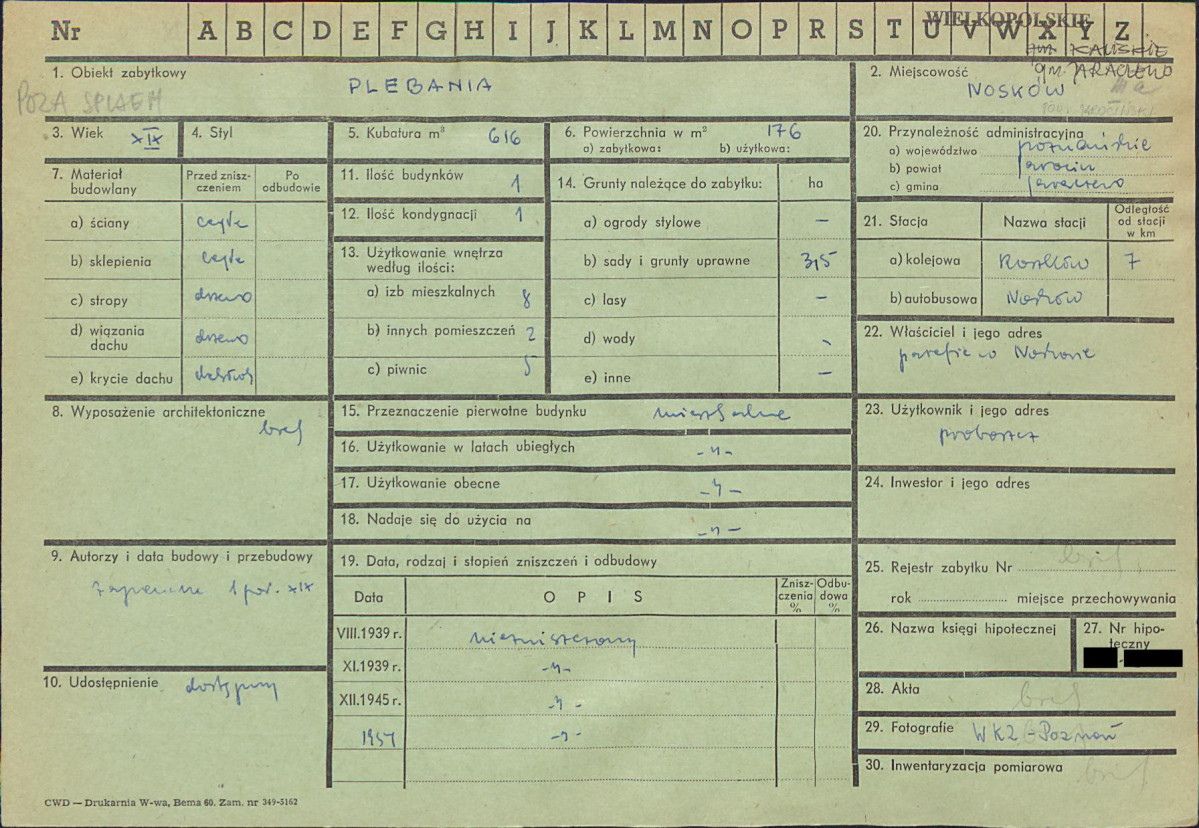 Nr A B C D E F G H I J K L M N O P R S T U V W X Y Z
WIELKOPOLSKIE
KALISKIE
gm. JARACZEWO
1. Obiekt zabytkowy PLEBANIA
POZA SPISEM
2. Miejscowość
NOSKÓW
3. Wiek XIX
4. Styl
5. Kubatura m³ 616
6. Powierzchnia w m² 176
a) zabytkowa: b) użytkowa:
20. Przynależność administracyjna
a) województwo poznańskie
b) powiat Jarocin
c) gmina Jaraczewo
7. Materiał budowlany
Przed zniszczeniem
Po odbudowie
a) ściany cegła
b) sklepienia cegła
c) stropy drzewo
d) wiązania dachu drzewo
e) krycie dachu dachówka
11. Ilość budynków 1
12. Ilość kondygnacji 1
13. Użytkowanie wnętrza według ilości:
a) izb mieszkalnych 8
b) innych pomieszczeń 2
c) piwnic 5
14. Grunty należące do zabytku: ha
a) ogrody stylowe —
b) sady i grunty uprawne 3,5
c) lasy —
d) wody -
e) inne —
21. Stacja Nazwa stacji Odległość od stacji w km
a) kolejowa 7
b) autobusowa Nosków
22. Właściciel i jego adres
parafia w Noskowie
8. Wyposażenie architektoniczne
brak
15. Przeznaczenie pierwotne budynku mieszkalne
16. Użytkowanie w latach ubiegłych -"-
17. Użytkowanie obecne -"-
18. Nadaje się do użycia na -"-
23. Użytkownik i jego adres
proboszcz
24. Inwestor i jego adres
9. Autorzy i data budowy i przebudowy
zapewne 1 poł. XIX
19. Data, rodzaj i stopień zniszczeń i odbudowy
Data OPIS Zniszczenia % Odbudowa %
VIII.1939 r. niezniszczony
XI.1939 r. -"-
XII.1945 r. -"-
1957 -"-
25. Rejestr zabytku Nr brak
rok miejsce przechowywania
26. Nazwa księgi hipotecznej
27. Nr hipoteczny
10. Udostępnienie dostępny
28. Akta brak
29. Fotografie WKZ - Poznań
30. Inwentaryzacja pomiarowa brak
CWD — Drukarnia W-wa, Bema 60. Zam. nr 349-5162